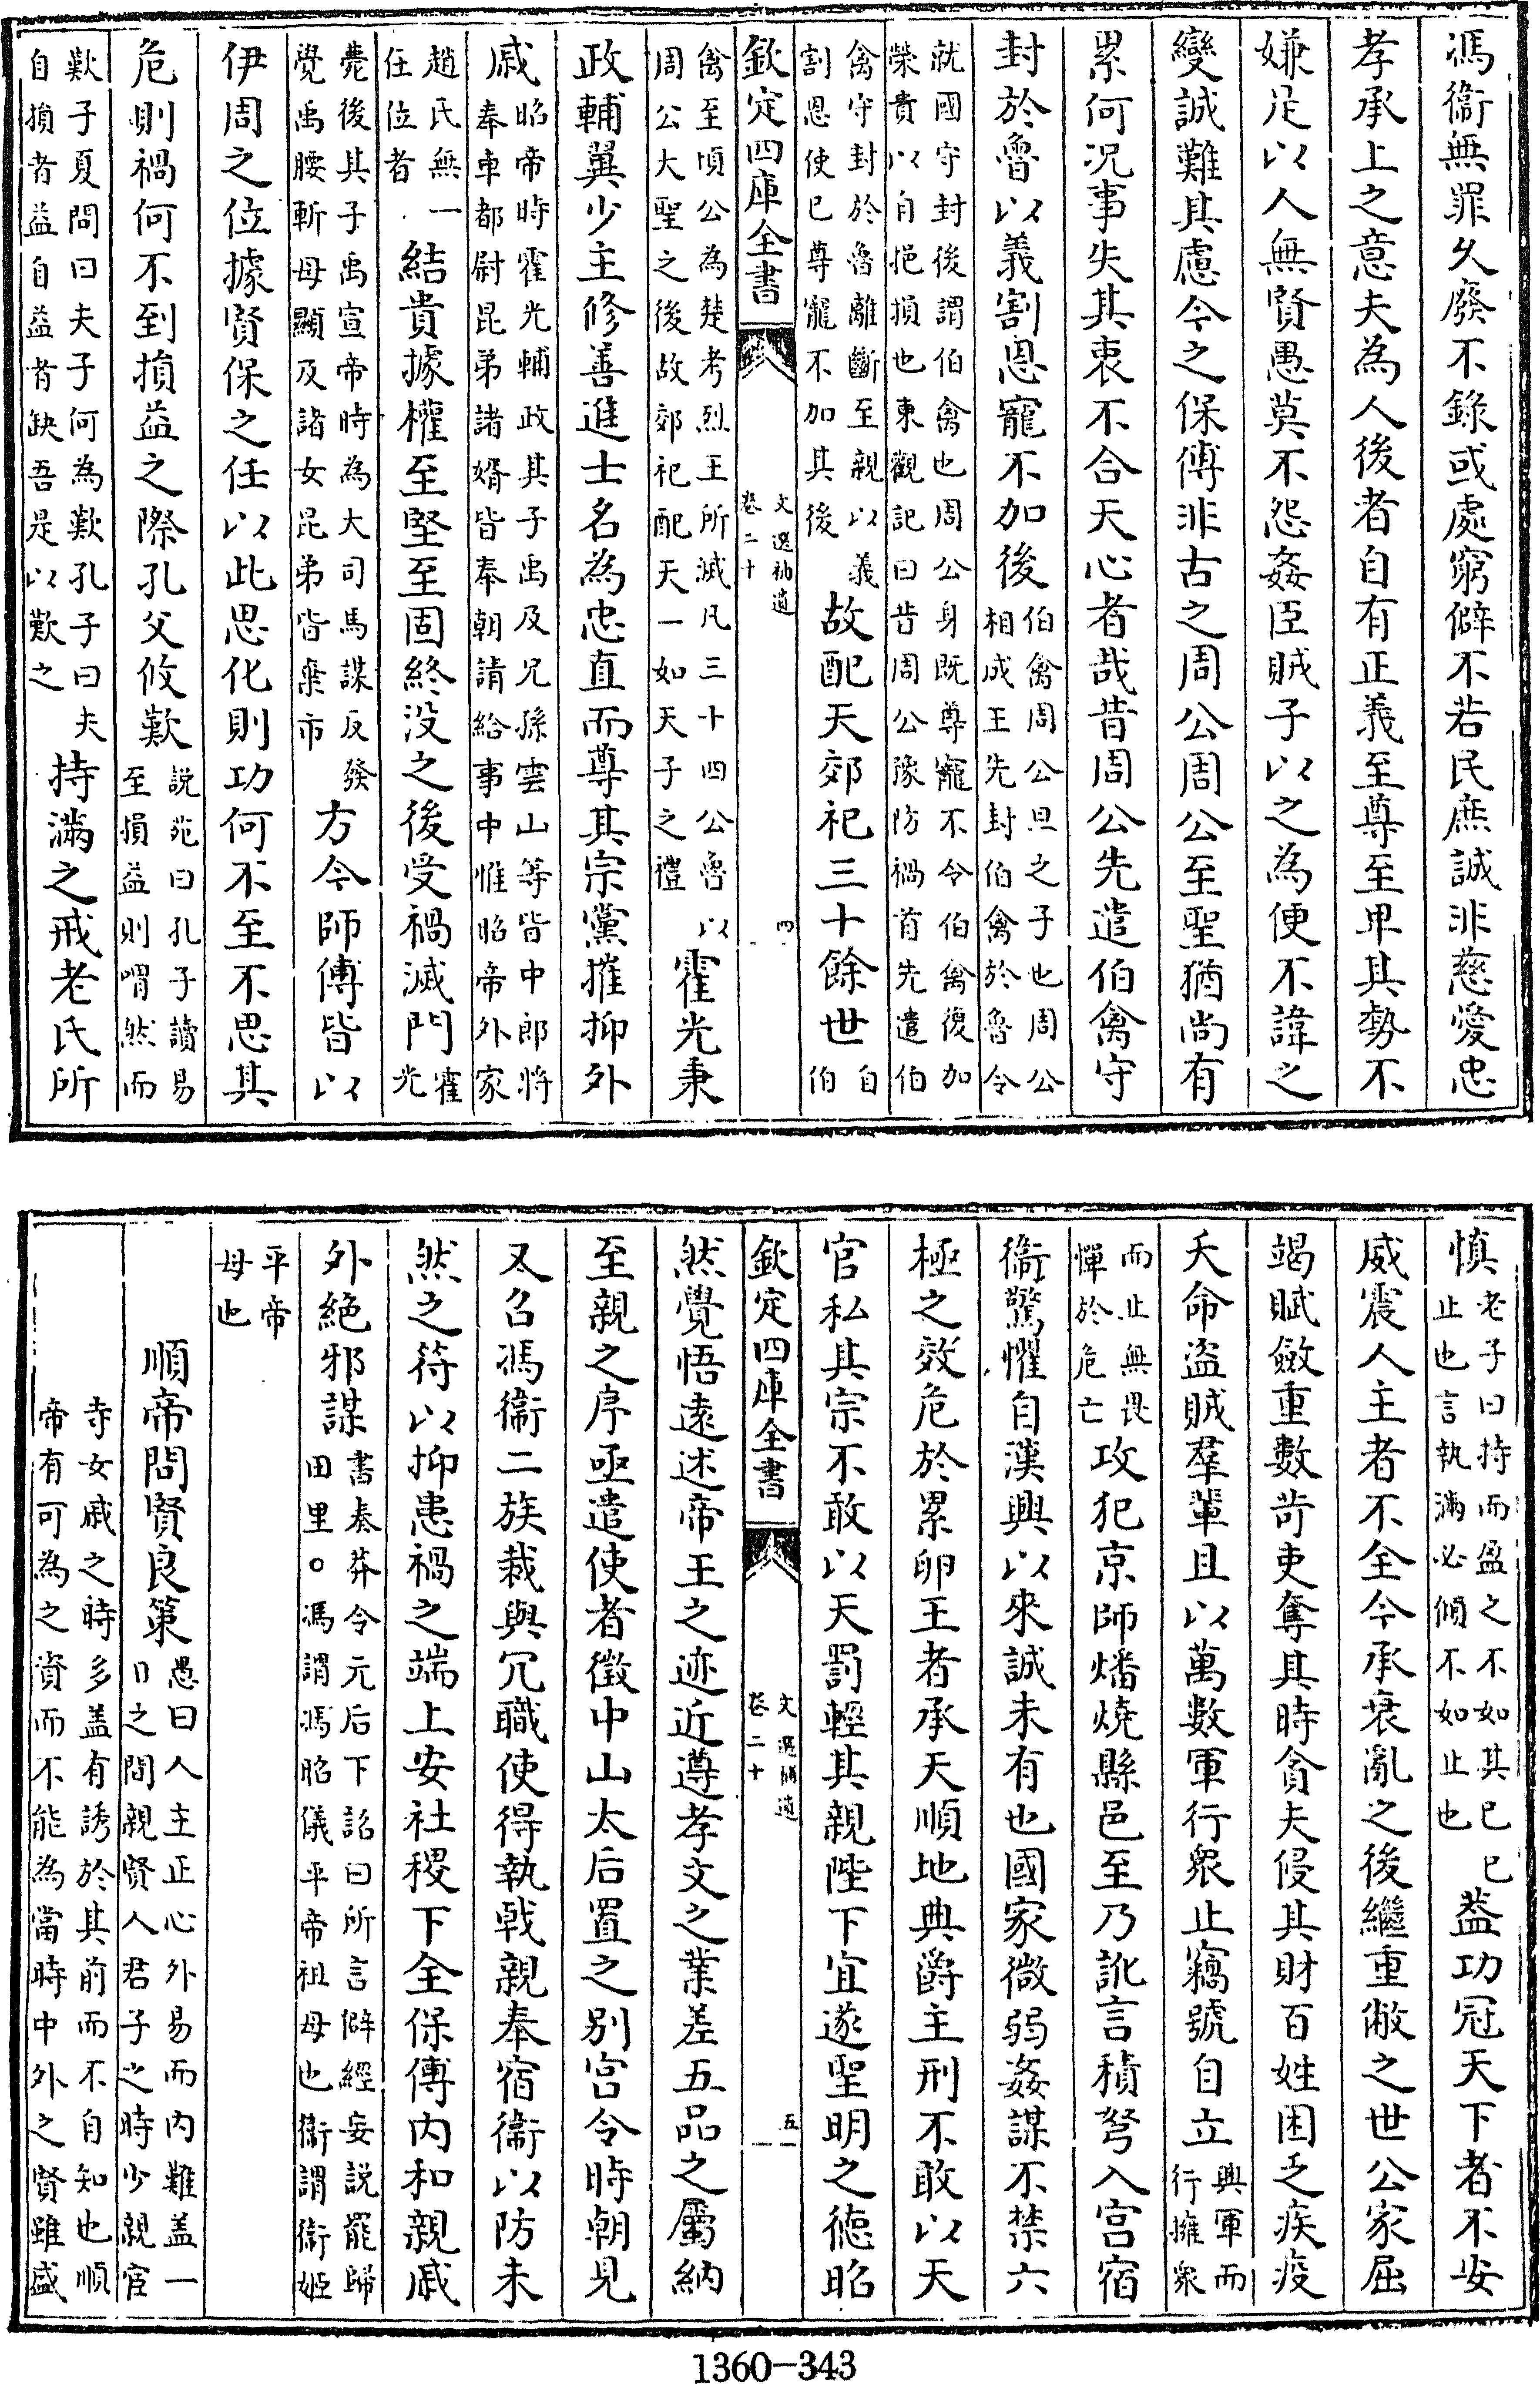 馮衞無罪久廢不錄或處窮僻不若民庶誠非慈愛忠
孝承上之意夫為人後者自有正義至尊至卑其勢不
嫌是以人無賢愚莫不怨姦臣賊子以之為便不諱之
變誠難其慮今之保傅非古之周公周公至聖猶尚有
累何況事失其衷不合天心者哉昔周公先遣伯禽守
封於魯以義割恩寵不加後伯禽周公旦之子也周公
相成王先封伯禽於魯令
就國守封後謂伯禽也周公身既尊寵不令伯禽復加
榮貴以自挹損也東觀記曰昔周公豫防禍首先遣伯
禽守封於魯離斷至親以義
割恩使已尊寵不加其後故配天郊祀三十餘世自
伯
欽定四庫全書
文選補遺
卷二十
四
禽至頃公為楚考烈王所滅凡三十四公魯以
周公大聖之後故郊祀配天一如天子之禮霍光秉
政輔翼少主修善進士名為忠直而尊其宗黨摧抑外
戚昭帝時霍光輔政其子禹及兄孫雲山等皆中郎將
奉車都尉昆弟諸婿皆奉朝請給事中惟昭帝外家
趙氏無一
任位者結貴據權至堅至固終沒之後受禍滅門霍
光
薨後其子禹宣帝時為大司馬謀反發
覺禹腰斬母顯及諸女昆弟皆棄市方今師傅皆以
伊周之位據賢保之任以此思化則功何不至不思其
危則禍何不到損益之際孔父攸歎説苑曰孔子讀易
至損益則喟然而
歎子夏問曰夫子何為歎孔子曰夫
自損者益自益者缺吾是以歎之持滿之戒老氏所
慎老子曰持而盈之不如其已已
止也言執滿必傾不如止也葢功冠天下者不安
威震人主者不全今承衰亂之後繼重敝之世公家屈
竭賦斂重數苛吏奪其時貪夫侵其財百姓困乏疾疫
夭命盜賊羣輩且以萬數軍行衆止竊號自立興軍而
行擁衆
而止無畏
憚於危亡攻犯京師燔燒縣邑至乃訛言積弩入宫宿
衞驚懼自漢興以來誠未有也國家微弱姦謀不禁六
極之效危於累卵王者承天順地典爵主刑不敢以天
官私其宗不敢以天罰輕其親陛下宜遂聖明之德昭
欽定四庫全書
文選補遺
卷二十
五
然覺悟遠述帝王之迹近遵孝文之業差五品之屬納
至親之序亟遣使者徵中山太后置之别宫令時朝見
又召馮衞二族裁與冗職使得執戟親奉宿衞以防未
然之符以抑患禍之端上安社稷下全保傅内和親戚
外絶邪謀書奏莽令元后下詔曰所言僻經妄説罷歸
田里○馮謂馮昭儀平帝祖母也衞謂衞姬
平帝
母也
順帝問賢良策愚曰人主正心外易而内難葢一
日之間親賢人君子之時少親宦
寺女戚之時多葢有誘於其前而不自知也順
帝有可為之資而不能為當時中外之賢雖盛
1360—343